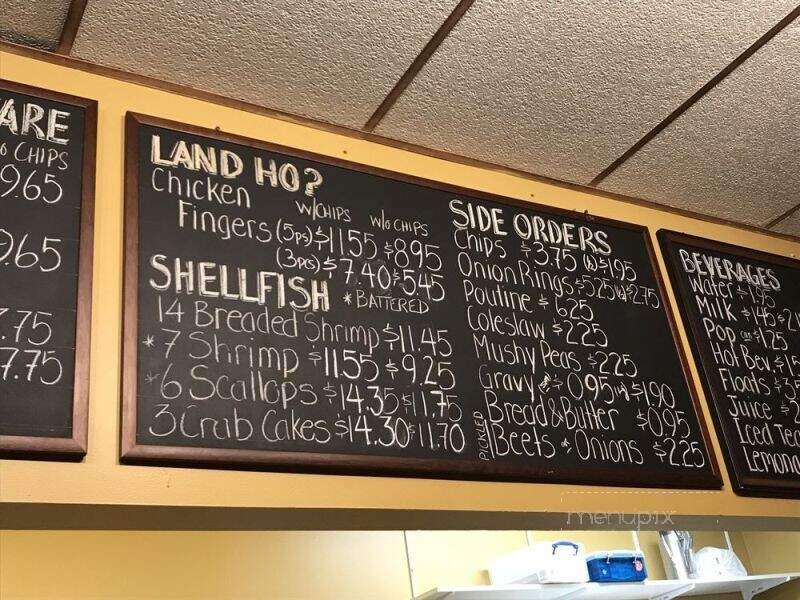 ARE
CHIPS
9.65
9.65
7.75
7.75
LAND HO?
Chicken
Fingers
W/CHIPS W/O CHIPS
(5pcs) $11.55 $8.95
(3pcs) $7.40 $5.45
SHELLFISH *BATTERED
14 Breaded Shrimp $11.45
*7 Shrimp $11.55 $9.25
*6 Scallops $14.35 $11.75
3 Crab Cakes $14.30 $11.70
SIDE ORDERS
Chips $3.75 $1.95
Onion Rings $5.25 $2.75
Poutine $6.25
Coleslaw $2.25
Mushy Peas $2.25
Gravy 0.95 $1.90
Bread & Butter $0.95
PICKLED Beets & Onions $2.25
BEVERAGES
Water $1.95
Milk $1.45
Pop $1.25
Hot Bev.
Floats
Juice
Iced Tea
Lemona
menupix